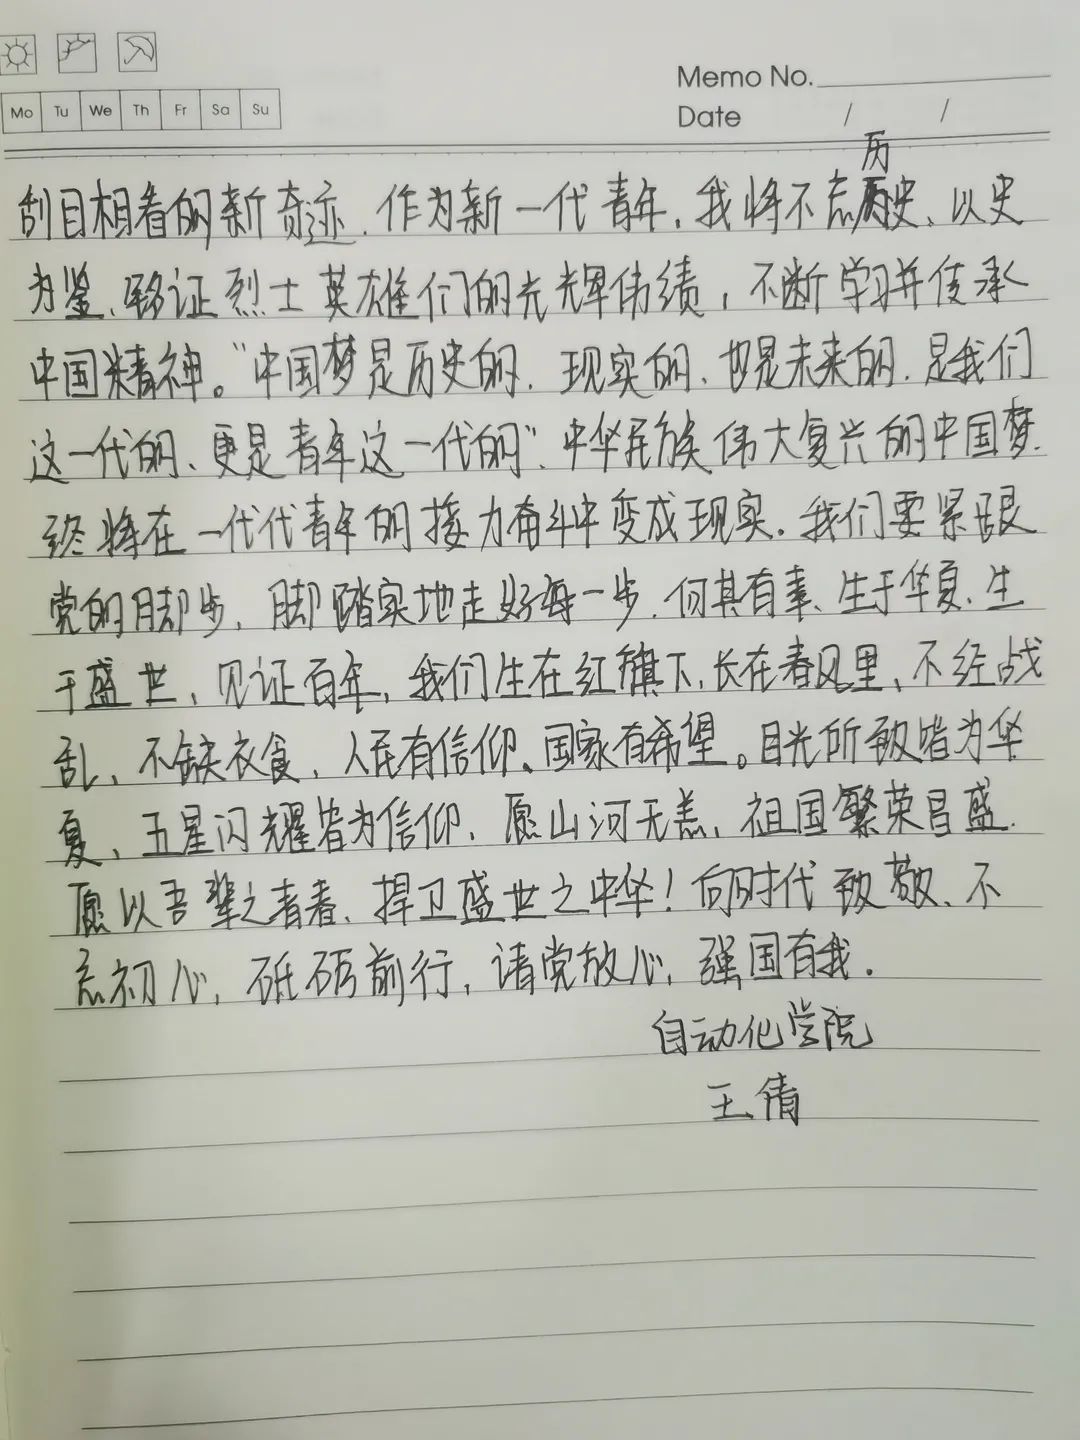 Memo No.
Mo Tu We Th Fr Sa Su
Date / /
历
刮目相看的新奇迹.作为新一代青年,我将不忘史、以史
为鉴、证烈士英雄们的光辉伟绩,不断学习并传承
中国精神。“中国梦是历史的、现实的、也是未来的.是我们
这一代的、更是青年这一代的”.中华民族伟大复兴的中国梦.
终将在一代代青年的接力奋斗中变成现实.我们要紧跟
党的脚步,脚踏实地走好每一步.何其有幸、生于华夏、生
于盛世,见证百年,我们生在红旗下,长在春风里、不经战
乱、不缺衣食,人民有信仰、国家有希望。目光所致皆为华
夏、五星闪耀皆为信仰、愿山河无恙,祖国繁荣昌盛.
愿以吾辈之青春、捍卫盛世之中华!向时代致敬、不
忘初心,砥砺前行,请党放心,强国有我.
自动化学院
王倩